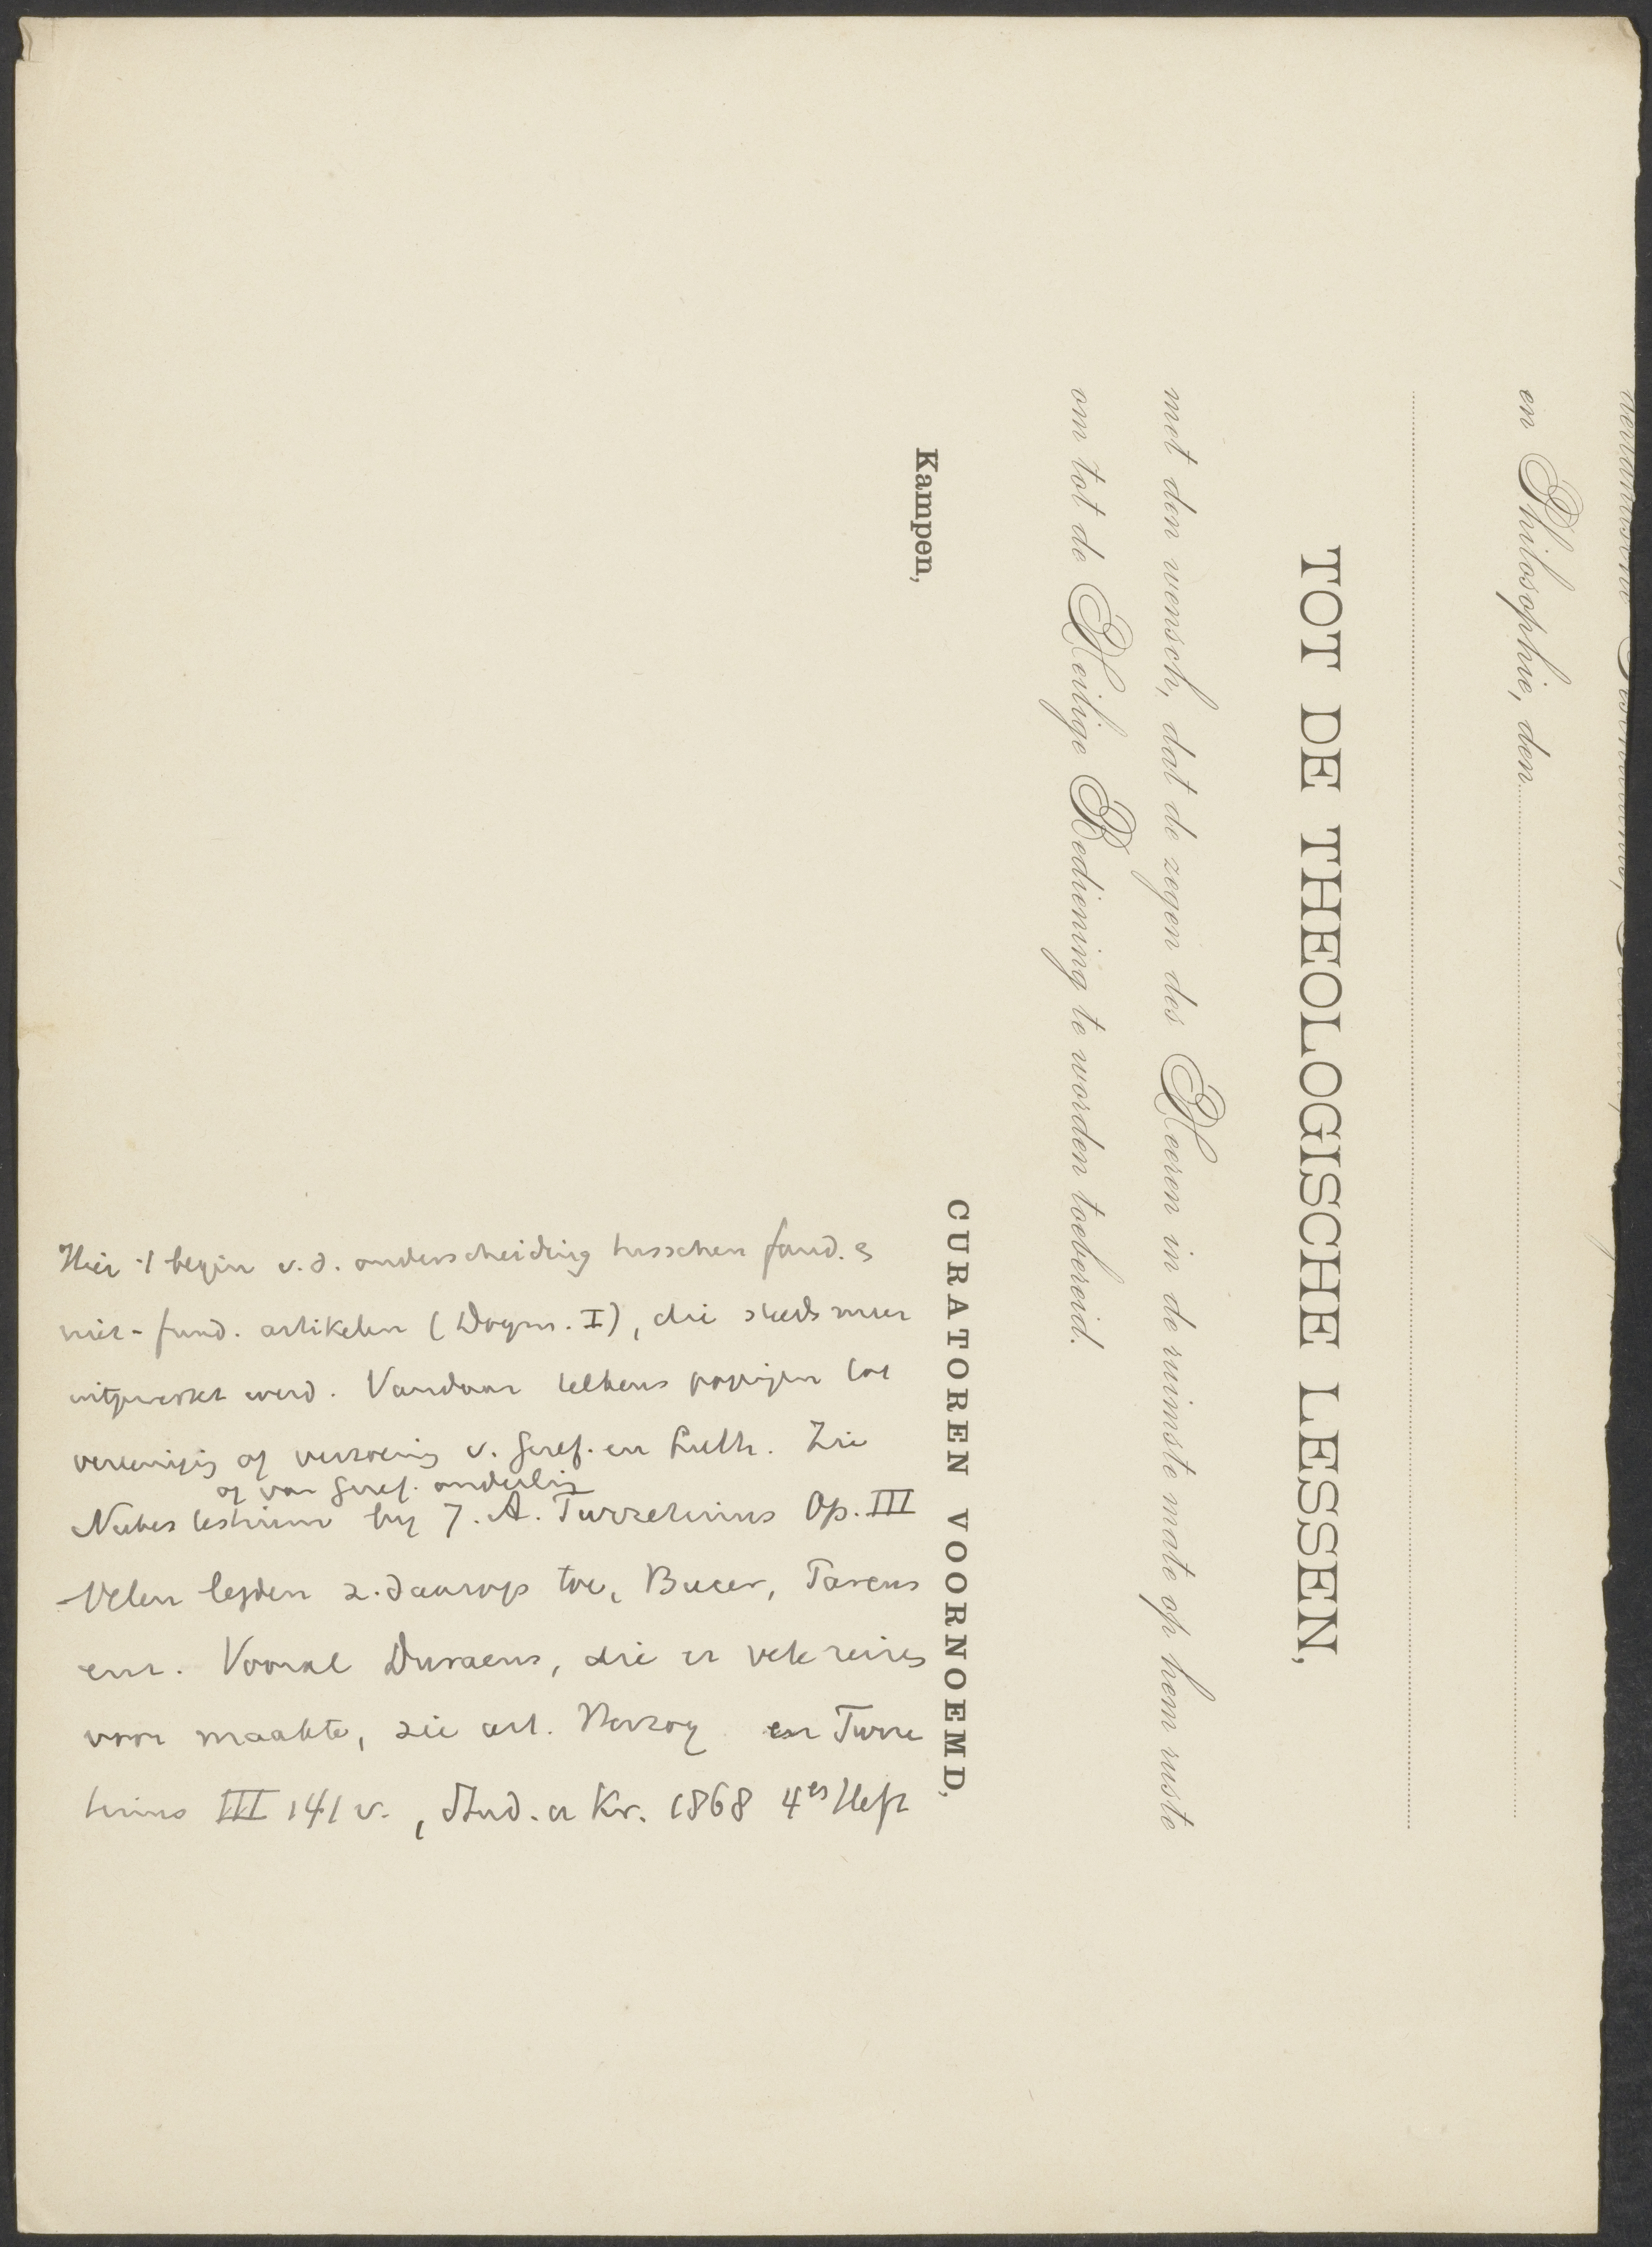 en Philosophie, den
TOT DE THEOLOGISCHE LESSEN,
met den wensch, dat de zegen des Heeren in de ruimste mate op hem ruste
om tot de Heilige Bediening te worden toebereid.
CURATOREN VOORNOEMD,
Kampen,
Hier 't begin v. d. onderscheiding tusschen fund. &
niet-fund. artikelen (Dogm. I), die steeds meer
uitgewerkt werd. Vandaar telkens pogingen tot
vereenigig of verzoenig v. Geref. en Luth. Zie
of van Geref. onderlig
Nubes testium by J. A. Turretinus Op. III
Velen legden z. daarop toe, Bucer, Pareus
enz. Vooral Duraeus, die er vele reizes
voor maakte, zie art. Herzog en Turre
tinus III 141 v., Stud. u Kr. 1868 4es Heft